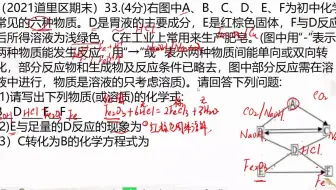 (2021道里区期末) 33.(4分)右图中A、B、C、D、E、F为初中化学
常见的六种物质。D是胃液的主要成分，E是红棕色固体，F与D反应
后所得溶液为浅绿色，C在工业上常用来生产肥皂。(图中用"-"表示
两种物质能发生反应，用"→"或" "表示两种物质间能单向或双向转
化，部分反应物和生成物及反应条件已略去，图中部分反应需在溶
液中进行，物质是溶液的只考虑溶质)。请回答下列问题:
(1)请写出下列物质(或溶质)的化学式:
D HCl E F Fe₂O₃+6HCl=2FeCl₃+3H₂O
2)E与足量的D反应的现象为 红棕色固体溶解
3) C转化为B的化学方程式为
CO₂/
A
CO₂
NaOH
HCl
Fe₂O₃
Fe